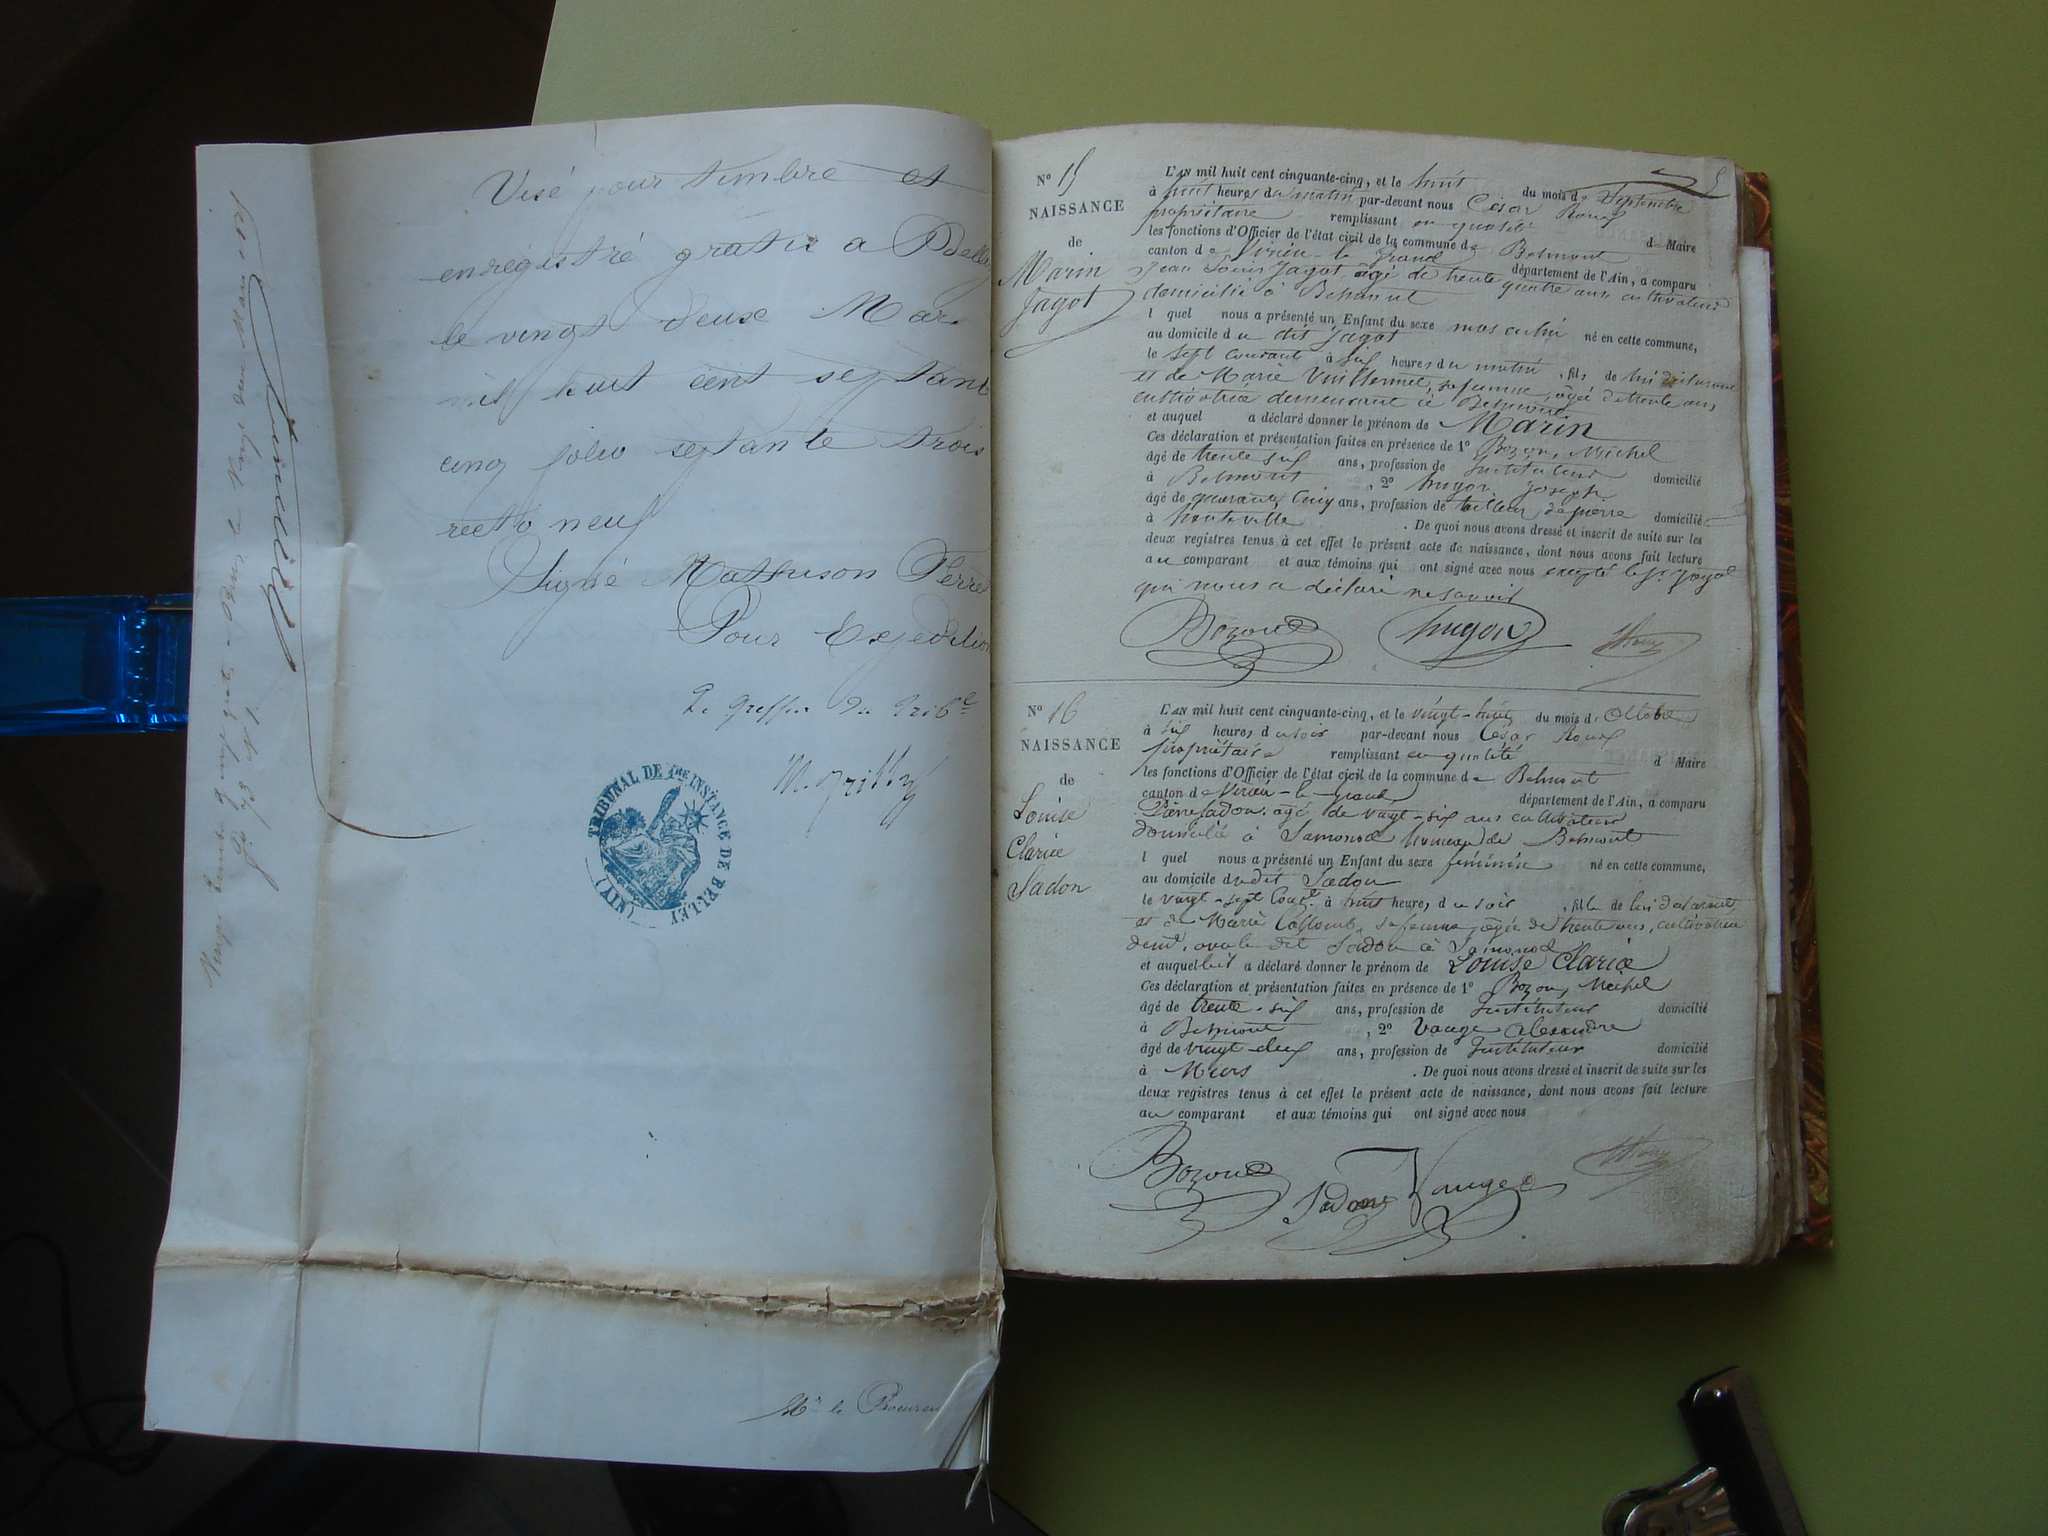 Visé pour timbre et
enregistré gratis a Belley
le vingt deux Mars
mil huit cent septante
cinq folio septante trois
recto neuf
Signé Mathieson Ferre
Pour Expédition
Le Greffier du Trib.le
TRIBUNAL DE 1RE INSTANCE DE BELLEY (AIN)
Mr le Procureu
No 15
NAISSANCE
de
Marin
Jagot
L'AN mil huit cent cinquante-cinq, et le huit du mois de Septembre
à huit heures du matin par-devant nous César Roux
propriétaire remplissant en qualité d Maire
les fonctions d'Officier de l'état civil de la commune de Belmont
canton de Virieu-le-grand département de l'Ain, a comparu
Jean Louis Jagot âgé de trente quatre ans cultivateur
domicilié à Belmont
l quel nous a présenté un Enfant du sexe masculin né en cette commune,
au domicile du dit Jagot
le sept courant à six heures du matin, fils de lui déclarant
et de Marie Vuillermet, sa femme, âgée de trente ans,
cultivatrice demeurant à Belmont
et auquel a déclaré donner le prénom de Marin
Ces déclaration et présentation faites en présence de 1o Bozon, Michel
âgé de trente six ans, profession de Instituteur domicilié
à Belmont, 2o hugon Joseph
âgé de quarante cinq ans, profession de tailleur de pierre domicilié
à hauteville. De quoi nous avons dressé et inscrit de suite sur les
deux registres tenus à cet effet le présent acte de naissance, dont nous avons fait lecture
au comparant et aux témoins qui ont signé avec nous excepté le Sr Jagot
qui nous a déclaré ne savoir
Bozon hugon Roux
No 16
NAISSANCE
de
Louise
Clarice
Sadon
L'AN mil huit cent cinquante-cinq, et le vingt-huit du mois d' Octobre
à six heures du soir par-devant nous César Roux
propriétaire remplissant en qualité d Maire
les fonctions d'Officier de l'état civil de la commune de Belmont
canton de Virieu-le-grand département de l'Ain, a comparu
Pierre Sadon âgé de vingt-six ans cultivateur
domicilié à Samonod hameau de Belmont
l quel nous a présenté un Enfant du sexe féminin né en cette commune,
au domicile du dit Sadon
le vingt-sept Cout à huit heures du soir, fille de lui déclarant
et de Marie Collomb, sa femme, âgée de trente ans, cultivatrice
demt. avec le dit Sadon à Samonod
et auquel a déclaré donner le prénom de Louise Clarice
Ces déclaration et présentation faites en présence de 1o Bozon, Michel
âgé de trente-six ans, profession de Instituteur domicilié
à Belmont, 2o Vauge Alexandre
âgé de vingt-deux ans, profession de Instituteur domicilié
à . De quoi nous avons dressé et inscrit de suite sur les
deux registres tenus à cet effet le présent acte de naissance, dont nous avons fait lecture
au comparant et aux témoins qui ont signé avec nous
Bozon Sadon Vauge Roux